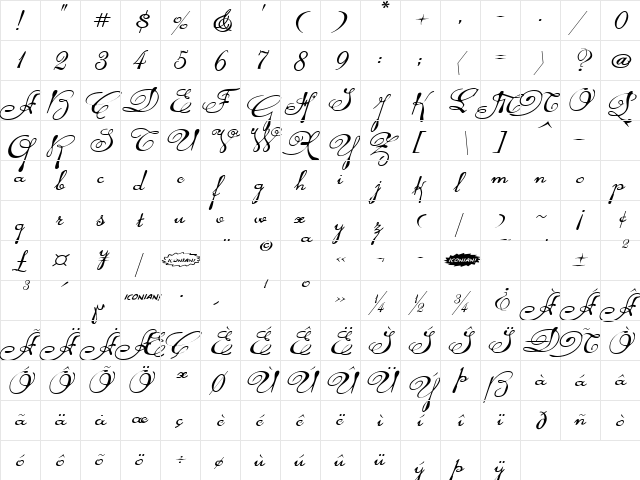 ! " # $ % & ' ( ) * + , - . / 0
1 2 3 4 5 6 7 8 9 : ; < = > ? @
A B C D E F G H I J K L M N O P
Q R S T U V W X Y Z [ \ ] ^ _
a b c d e f g h i j k l m n o p
q r s t u v w x y z { | } ~ ¡ ¢
£ ¤ ¥ | ICONIAN! ¨ © a « ¬ - ICONIAN! ¯ ° ± 2
3 ´ µ ICONIAN! · ¸ 1 o » 1/4 1/2 3/4 ¿ À Á Â
Ã Ä Å Æ Ç È É Ê Ë Ì Í Î Ï Ð Ñ Ò
Ó Ô Õ Ö × Ø Ù Ú Û Ü Ý Þ ß à á â
ã ä å æ ç è é ê ë ì í î ï ð ñ ò
ó ô õ ö ÷ ø ù ú û ü ý þ ÿ